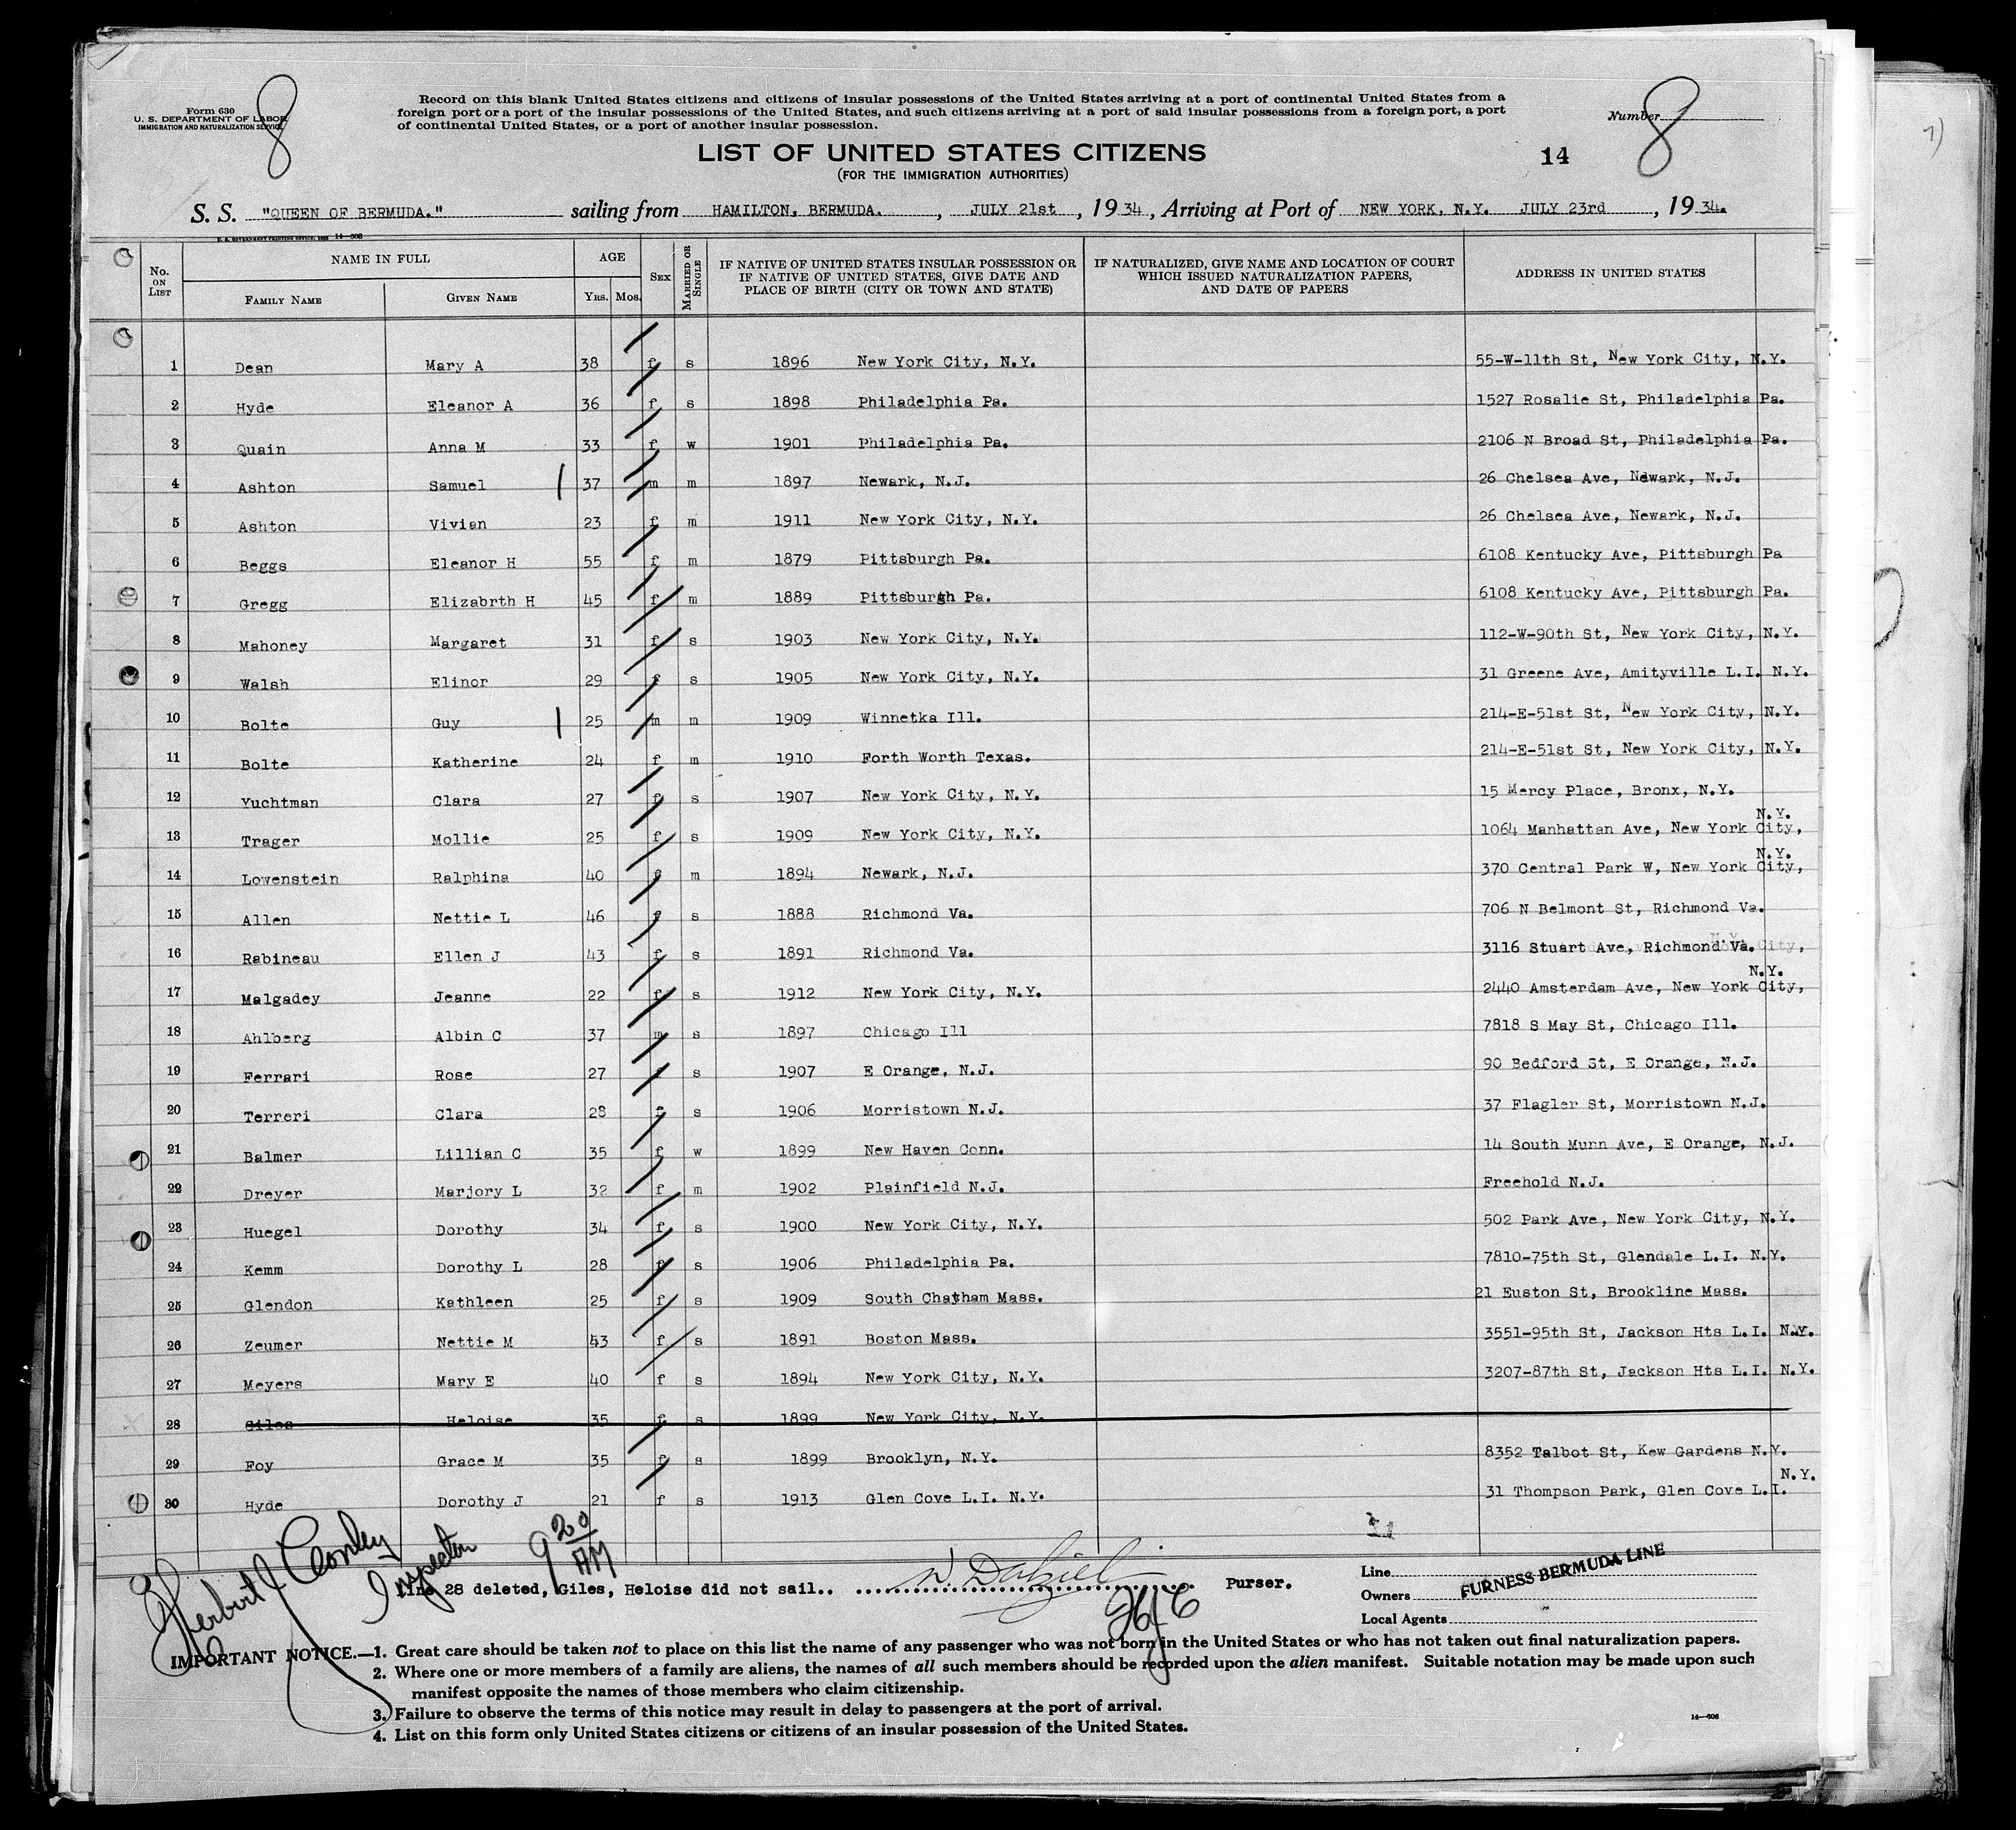 Form 630
U. S. DEPARTMENT OF LABOR
IMMIGRATION AND NATURALIZATION SERVICE
8
Record on this blank United States citizens and citizens of insular possessions of the United States arriving at a port of continental United States from a
foreign port or a port of the insular possessions of the United States, and such citizens arriving at a port of said insular possessions from a foreign port, a port
of continental United States, or a port of another insular possession.
Number 8
LIST OF UNITED STATES CITIZENS
(FOR THE IMMIGRATION AUTHORITIES)
14
S. S. "QUEEN OF BERMUDA." sailing from HAMILTON, BERMUDA. , JULY 21st , 1934 , Arriving at Port of NEW YORK, N.Y. JULY 23rd , 1934.
U. S. GOVERNMENT PRINTING OFFICE 14—608
No. ON LIST NAME IN FULL FAMILY NAME GIVEN NAME AGE YRS. MOS. SEX MARRIED OR SINGLE IF NATIVE OF UNITED STATES INSULAR POSSESSION OR IF NATIVE OF UNITED STATES, GIVE DATE AND PLACE OF BIRTH (CITY OR TOWN AND STATE) IF NATURALIZED, GIVE NAME AND LOCATION OF COURT WHICH ISSUED NATURALIZATION PAPERS, AND DATE OF PAPERS ADDRESS IN UNITED STATES
1 Dean Mary A 38 f s 1896 New York City, N.Y. 55-W-11th St, New York City, N.Y.
2 Hyde Eleanor A 36 f s 1898 Philadelphia Pa. 1527 Rosalie St, Philadelphia Pa.
3 Quain Anna M 33 f w 1901 Philadelphia Pa. 2106 N Broad St, Philadelphia Pa.
4 Ashton Samuel 37 m m 1897 Newark, N.J. 26 Chelsea Ave, Newark, N.J.
5 Ashton Vivian 23 f m 1911 New York City, N.Y. 26 Chelsea Ave, Newark, N.J.
6 Beggs Eleanor H 55 f m 1879 Pittsburgh Pa. 6108 Kentucky Ave, Pittsburgh Pa
7 Gregg Elizabrth H 45 f m 1889 Pittsburgh Pa. 6108 Kentucky Ave, Pittsburgh Pa.
8 Mahoney Margaret 31 f s 1903 New York City, N.Y. 112-W-90th St, New York City, N.Y.
9 Walsh Elinor 29 f s 1905 New York City, N.Y. 31 Greene Ave, Amityville L.I. N.Y.
10 Bolte Guy 25 m m 1909 Winnetka Ill. 214-E-51st St, New York City, N.Y.
11 Bolte Katherine 24 f m 1910 Forth Worth Texas. 214-E-51st St, New York City, N.Y.
12 Yuchtman Clara 27 f s 1907 New York City, N.Y. 15 Mercy Place, Bronx, N.Y.
13 Trager Mollie 25 f s 1909 New York City, N.Y. 1064 Manhattan Ave, New York City, N.Y.
14 Lowenstein Ralphina 40 f m 1894 Newark, N.J. 370 Central Park W, New York City, N.Y.
15 Allen Nettie L 46 f s 1888 Richmond Va. 706 N Belmont St, Richmond Va.
16 Rabineau Ellen J 43 f s 1891 Richmond Va. 3116 Stuart Ave, Richmond Va.
17 Malgadey Jeanne 22 f s 1912 New York City, N.Y. 2440 Amsterdam Ave, New York City, N.Y.
18 Ahlberg Albin C 37 m s 1897 Chicago Ill 7818 S May St, Chicago Ill.
19 Ferrari Rose 27 f s 1907 E Orange, N.J. 90 Bedford St, E Orange, N.J.
20 Terreri Clara 28 f s 1906 Morristown N.J. 37 Flagler St, Morristown N.J.
21 Balmer Lillian C 35 f w 1899 New Haven Conn. 14 South Munn Ave, E Orange, N.J.
22 Dreyer Marjory L 32 f m 1902 Plainfield N.J. Freehold N.J.
23 Huegel Dorothy 34 f s 1900 New York City, N.Y. 502 Park Ave, New York City, N.Y.
24 Kemm Dorothy L 28 f s 1906 Philadelphia Pa. 7810-75th St, Glendale L.I. N.Y.
25 Glendon Kathleen 25 f s 1909 South Chatham Mass. 21 Euston St, Brookline Mass.
26 Zeumer Nettie M 43 f s 1891 Boston Mass. 3551-95th St, Jackson Hts L.I. N.Y.
27 Meyers Mary E 40 f s 1894 New York City, N.Y. 3207-87th St, Jackson Hts L.I. N.Y.
28 Giles Heloise 35 f s 1899 New York City, N.Y.
29 Foy Grace M 35 f s 1899 Brooklyn, N.Y. 8352 Talbot St, Kew Gardens N.Y.
30 Hyde Dorothy J 21 f s 1913 Glen Cove L.I. N.Y. 31 Thompson Park, Glen Cove L.I. N.Y.
Herbert J Conley
Inspector
9 20 AM
Line 28 deleted, Giles, Heloise did not sail.. W Dalziel Purser.
Line FURNESS BERMUDA LINE
Owners
Local Agents
IMPORTANT NOTICE.—1. Great care should be taken not to place on this list the name of any passenger who was not born in the United States or who has not taken out final naturalization papers.
2. Where one or more members of a family are aliens, the names of all such members should be recorded upon the alien manifest. Suitable notation may be made upon such
manifest opposite the names of those members who claim citizenship.
3. Failure to observe the terms of this notice may result in delay to passengers at the port of arrival.
4. List on this form only United States citizens or citizens of an insular possession of the United States.
14—608